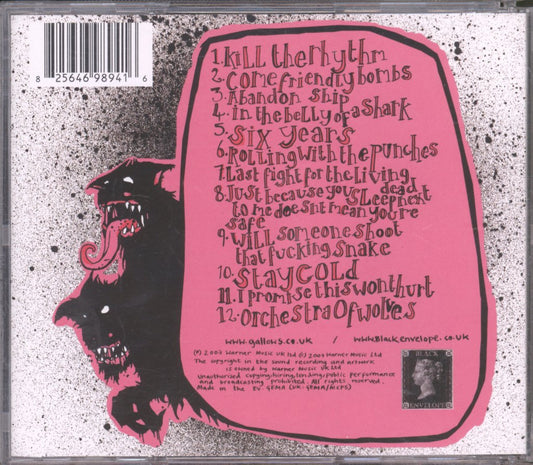 8 25646 98941 6
1. Kill the rhythm
2. Come friendly bombs
3. Abandon ship
4. in the belly of a shark
5. Six years
6. Rolling with the punches
7. Last fight for the living
8. Just because you sleep next
dead
to me doesnt mean you're
safe
9. Will someone shoot
that fucking snake
10. Staycold
11. I promise this wont hurt
12. Orchestra Of wolves
www.gallows.co.uk / www.Blackenvelope.co.uk
(P) 2007 Warner Music UK Ltd (c) 2007 Warner Music Ltd
The copyright in the sound recording and network
is owned by Warner Music UK Ltd
Unauthorised copying, hiring, lending, public performance
and broadcasting prohibited. All rights reserved.
Made in the EU. GEMA (UK: GEMA/MCPS)
BLACK
ENVELOPE